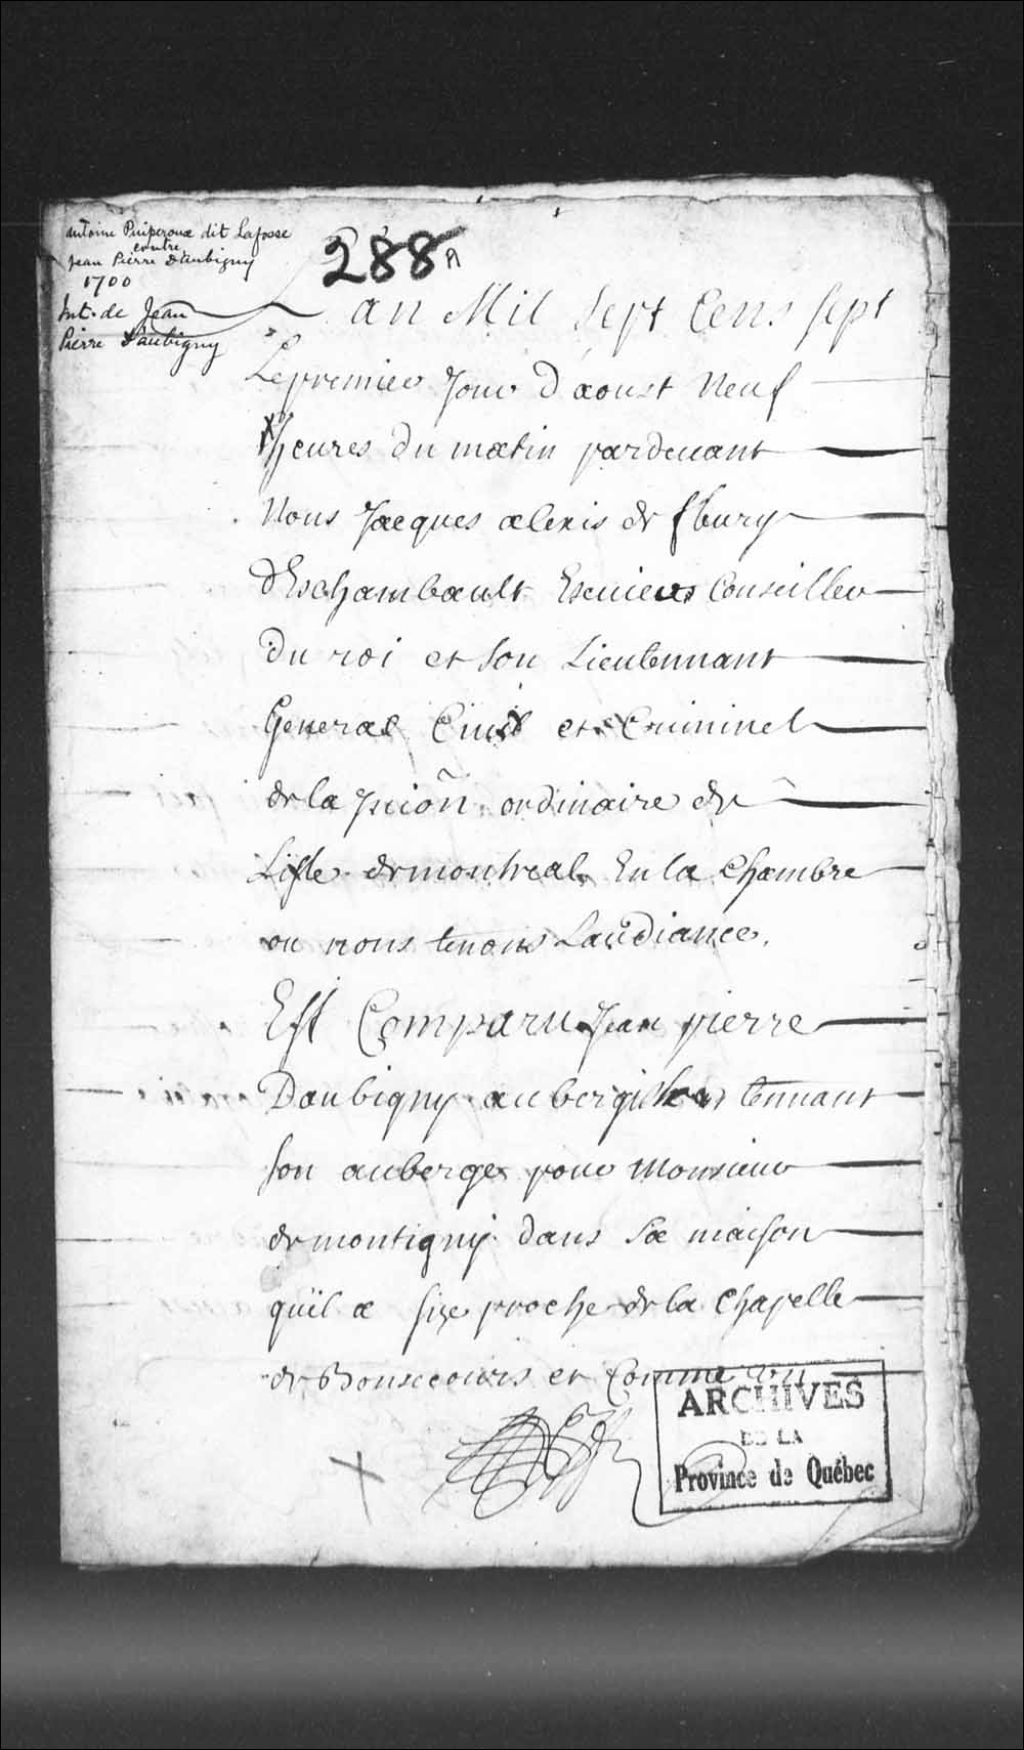 antoine Puyperoux dit Lafosse
contre
Jean Pierre Daubigny
1700
Int. de Jean
Pierre Daubigny
288 A
Lan Mil Sept Cens sept
Lepremier Jour Daoust Neuf
heures du matin pardeuant
Nous Jacques alexis de fleury
dEschambault Escuier Conseiller
Du roi et son Lieutennant
General Ciuil et Criminel
dela Jricion ordinaire de
Lisle demontreal En la Chambre
ou nous tenons Laudiance.
Est Comparu Jean pierre
Daubigny aubergiste tennant
son auberge pour Monsieur
demontigny dans sa maison
quil a size proche de la Chapelle
de Bonsecours et Comme
ARCHIVES
DE LA
Province de Québec